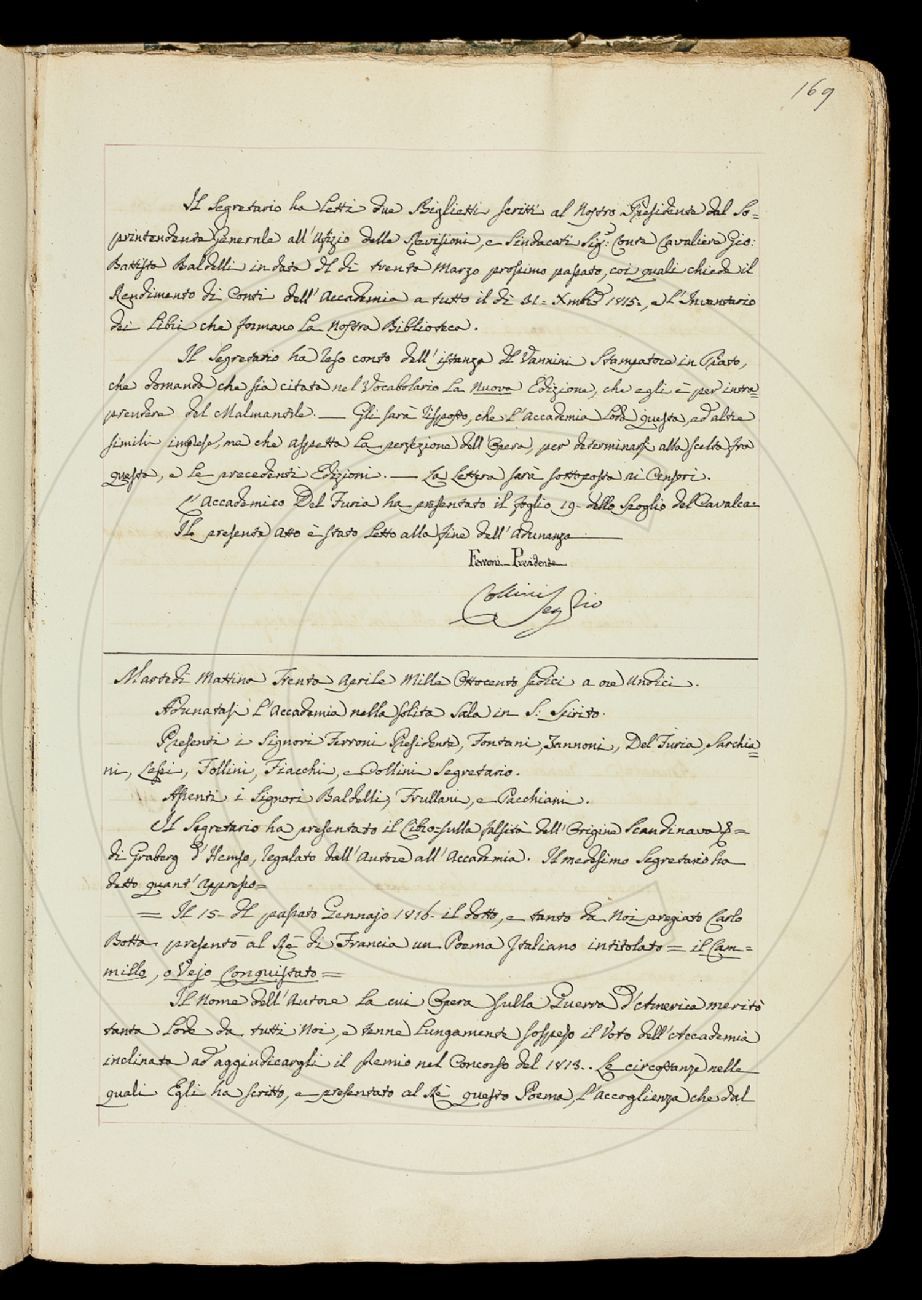 169
Il Segretario ha letti due Biglietti scritti al Nostro Presidente dal So-
printendente Generale all'Ufizio delle Revisioni, e Sindacati Sig: Conte Cavaliere Gio:
Battista Baldelli in data del dì trenta Marzo prossimo passato, coi quali chiede il
Rendimento di Conti dell'Accademia a tutto il dì 31- Xmbre 1815., e l'Inventario
dei Libri che formano la Nostra Biblioteca.
Il Segretario ha reso conto dell'istanza del Vannini Stampatore in Prato,
che domanda che sia citata nel Vocabolario la nuova Edizione, che egli è per intra=
prendere del Malmantile. — Gli sarà risposto, che l'Accademia loda questa, ed altre
simili imprese, ma che aspetta la perfezione dell'Opera, per determinarsi alla scelta fra
questa, e le precedenti Edizioni. — La Lettera sarà sottoposta ai Censori.
L'Accademico Del Furia ha presentato il foglio 19- dello Spoglio del Cavalca=
Il presente Atto è stato letto alla fine dell'Adunanza
Ferroni Presidente
Collini Segrio
Martedì Mattina Trenta Aprile Mille Ottocento sedici a ore Undici.
Adunatasi l'Accademia nella solita Sala in S. Spirito.
Presenti i Signori Ferroni Presidente, Fontani, Zannoni, Del Furia, Sarchia=
ni, Lessi, Follini, Fiacchi, e Collini Segretario.
Assenti i Signori Baldelli, Frullani, e Pacchiani.
Il Segretario ha presentato il Libro=sulla falsità dell'Origine Scandinava &=
di Graberg d'Hemso, regalato dall'Autore all'Accademia. Il medesimo Segretario ha
detto quant'appresso=
= Il 15- del passato Gennajo 1816- il dotto, e tanto da Noi pregiato Carlo
Botta presentò al Rè di Francia un Poema Italiano intitolato = il Cam=
millo, o Vejo Conquistato =
Il Nome dell'Autore la cui Opera sulla Guerra d'America meritò
tanta lode da tutti Noi, e tenne lungamente sospeso il Voto dell'Accademia
inclinata ad aggiudicargli il Premio nel Concorso del 1813.. Le circostanze nelle
quali Egli ha scritto, e presentato al Rè questo Poema, l'Accoglienza che dal